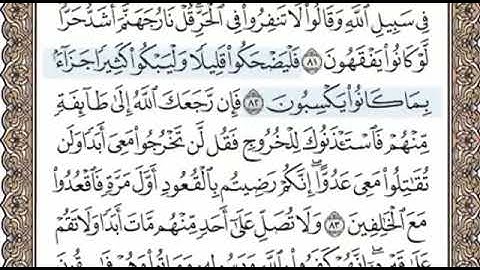 فِي سَبِيلِ ٱللَّهِ وَقَالُواْ لَا تَنفِرُواْ فِي ٱلۡحَرِّۗ قُلۡ نَارُ جَهَنَّمَ أَشَدُّ حَرّٗاۚ
لَّوۡ كَانُواْ يَفۡقَهُونَ ٨١ فَلۡيَضۡحَكُواْ قَلِيلٗا وَلۡيَبۡكُواْ كَثِيرٗا جَزَآءَۢ
بِمَا كَانُواْ يَكۡسِبُونَ ٨٢ فَإِن رَّجَعَكَ ٱللَّهُ إِلَىٰ طَآئِفَةٖ
مِّنۡهُمۡ فَٱسۡتَـٔۡذَنُوكَ لِلۡخُرُوجِ فَقُل لَّن تَخۡرُجُواْ مَعِيَ أَبَدٗا وَلَن
تُقَٰتِلُواْ مَعِيَ عَدُوًّاۖ إِنَّكُمۡ رَضِيتُم بِٱلۡقُعُودِ أَوَّلَ مَرَّةٖ فَٱقۡعُدُواْ
مَعَ ٱلۡخَٰلِفِينَ ٨٣ وَلَا تُصَلِّ عَلَىٰٓ أَحَدٖ مِّنۡهُم مَّاتَ أَبَدٗا وَلَا تَقُمۡ